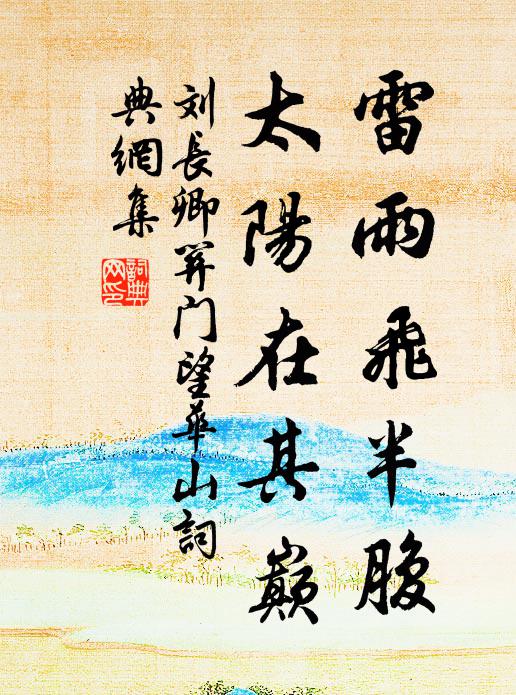 雷雨飛半腹
太陽在其巔
刘長卿关門望華山詞
典網集
詞典
网印